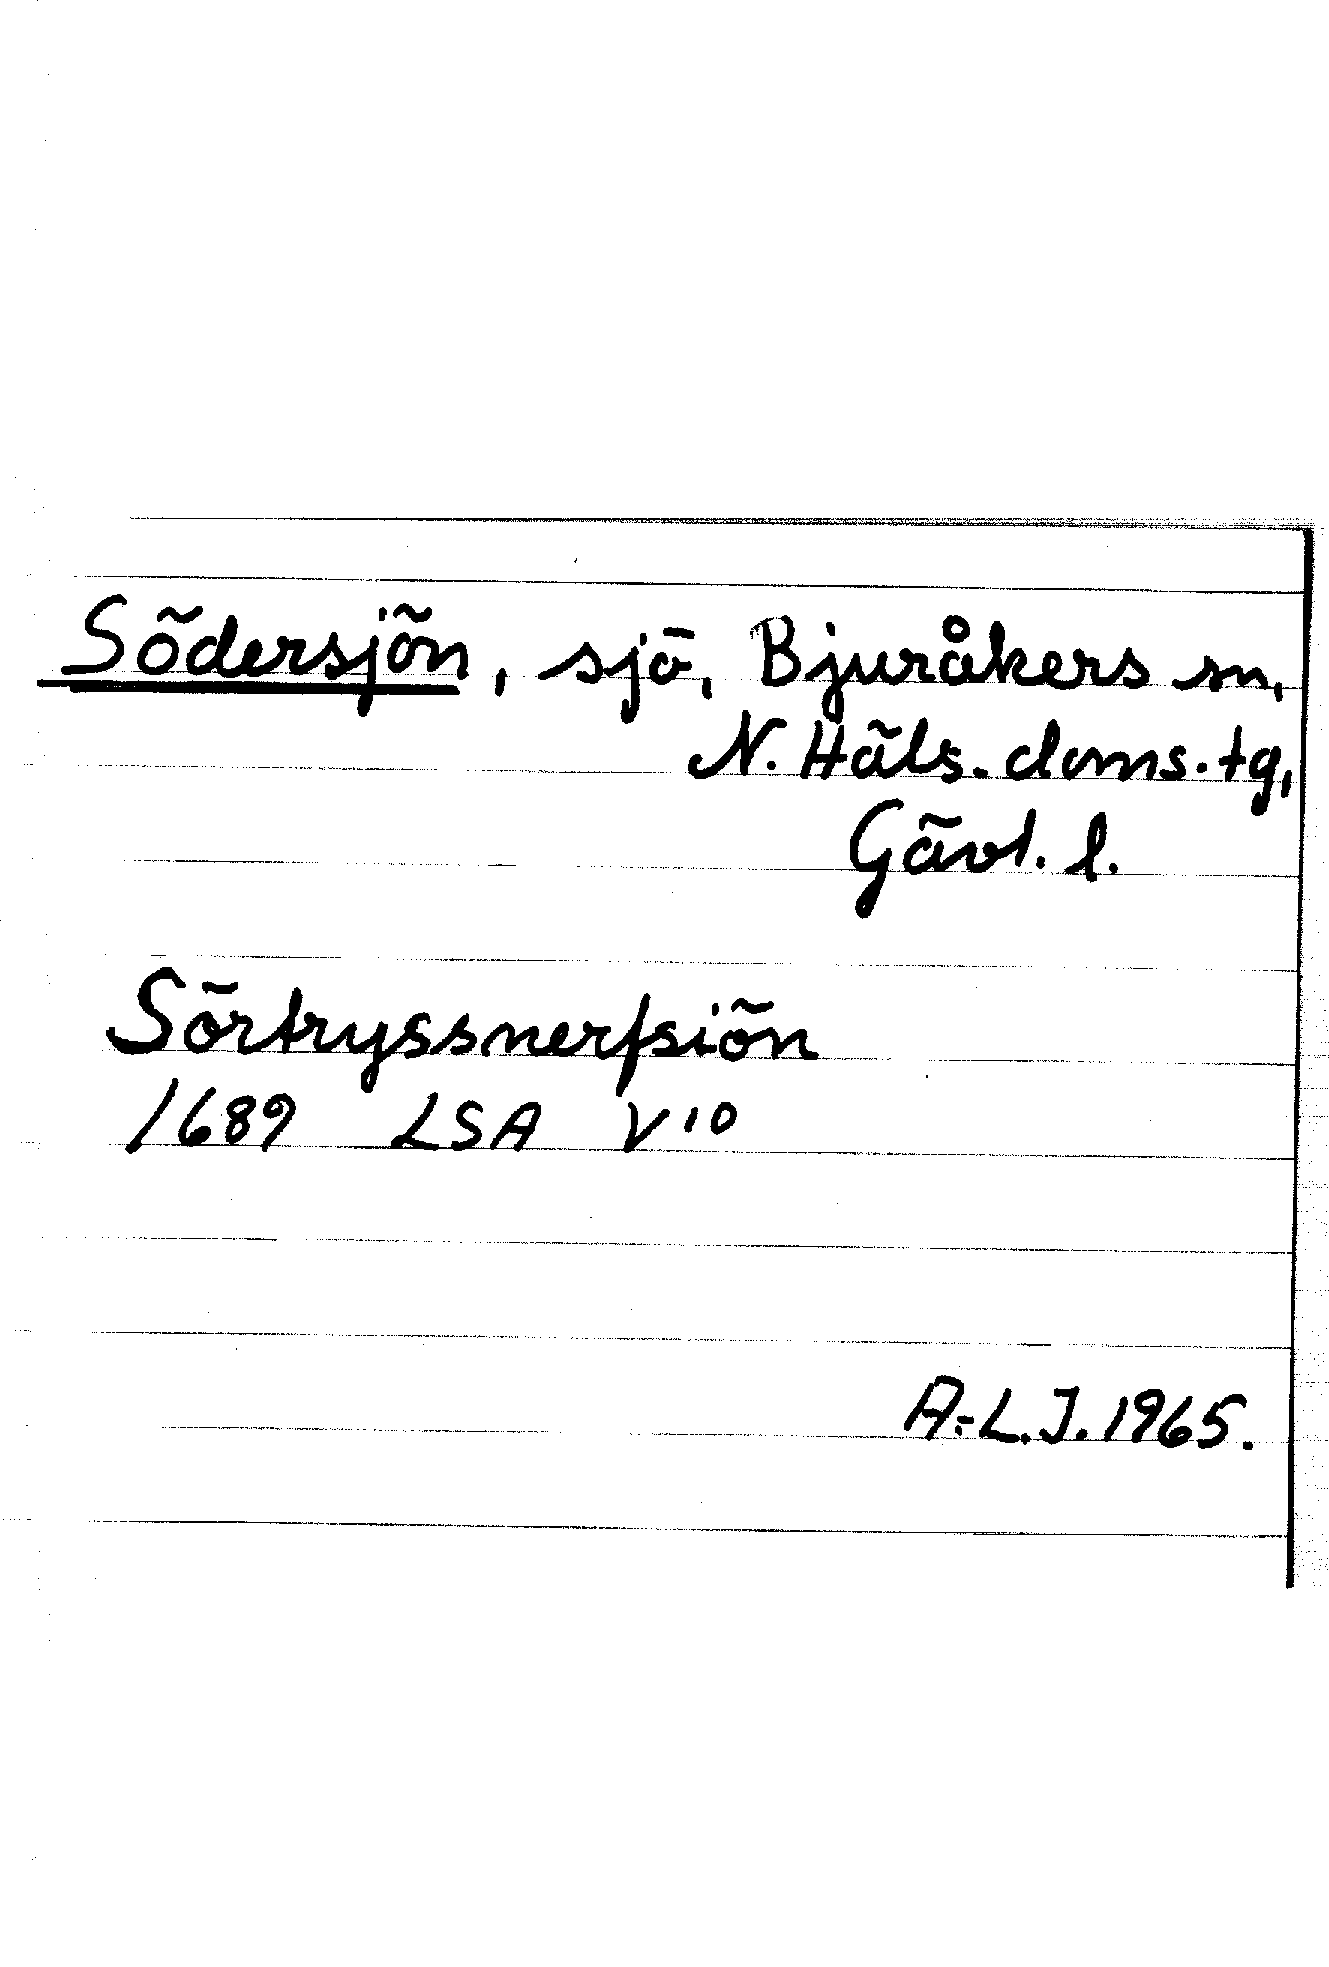 Södersjön, sjö, Bjuråkers sn,
N. Häls. doms. tg,
Gävl. l.
Sörtryssnerſsiön
1689 LSA V10
A.-L.J. 1965.